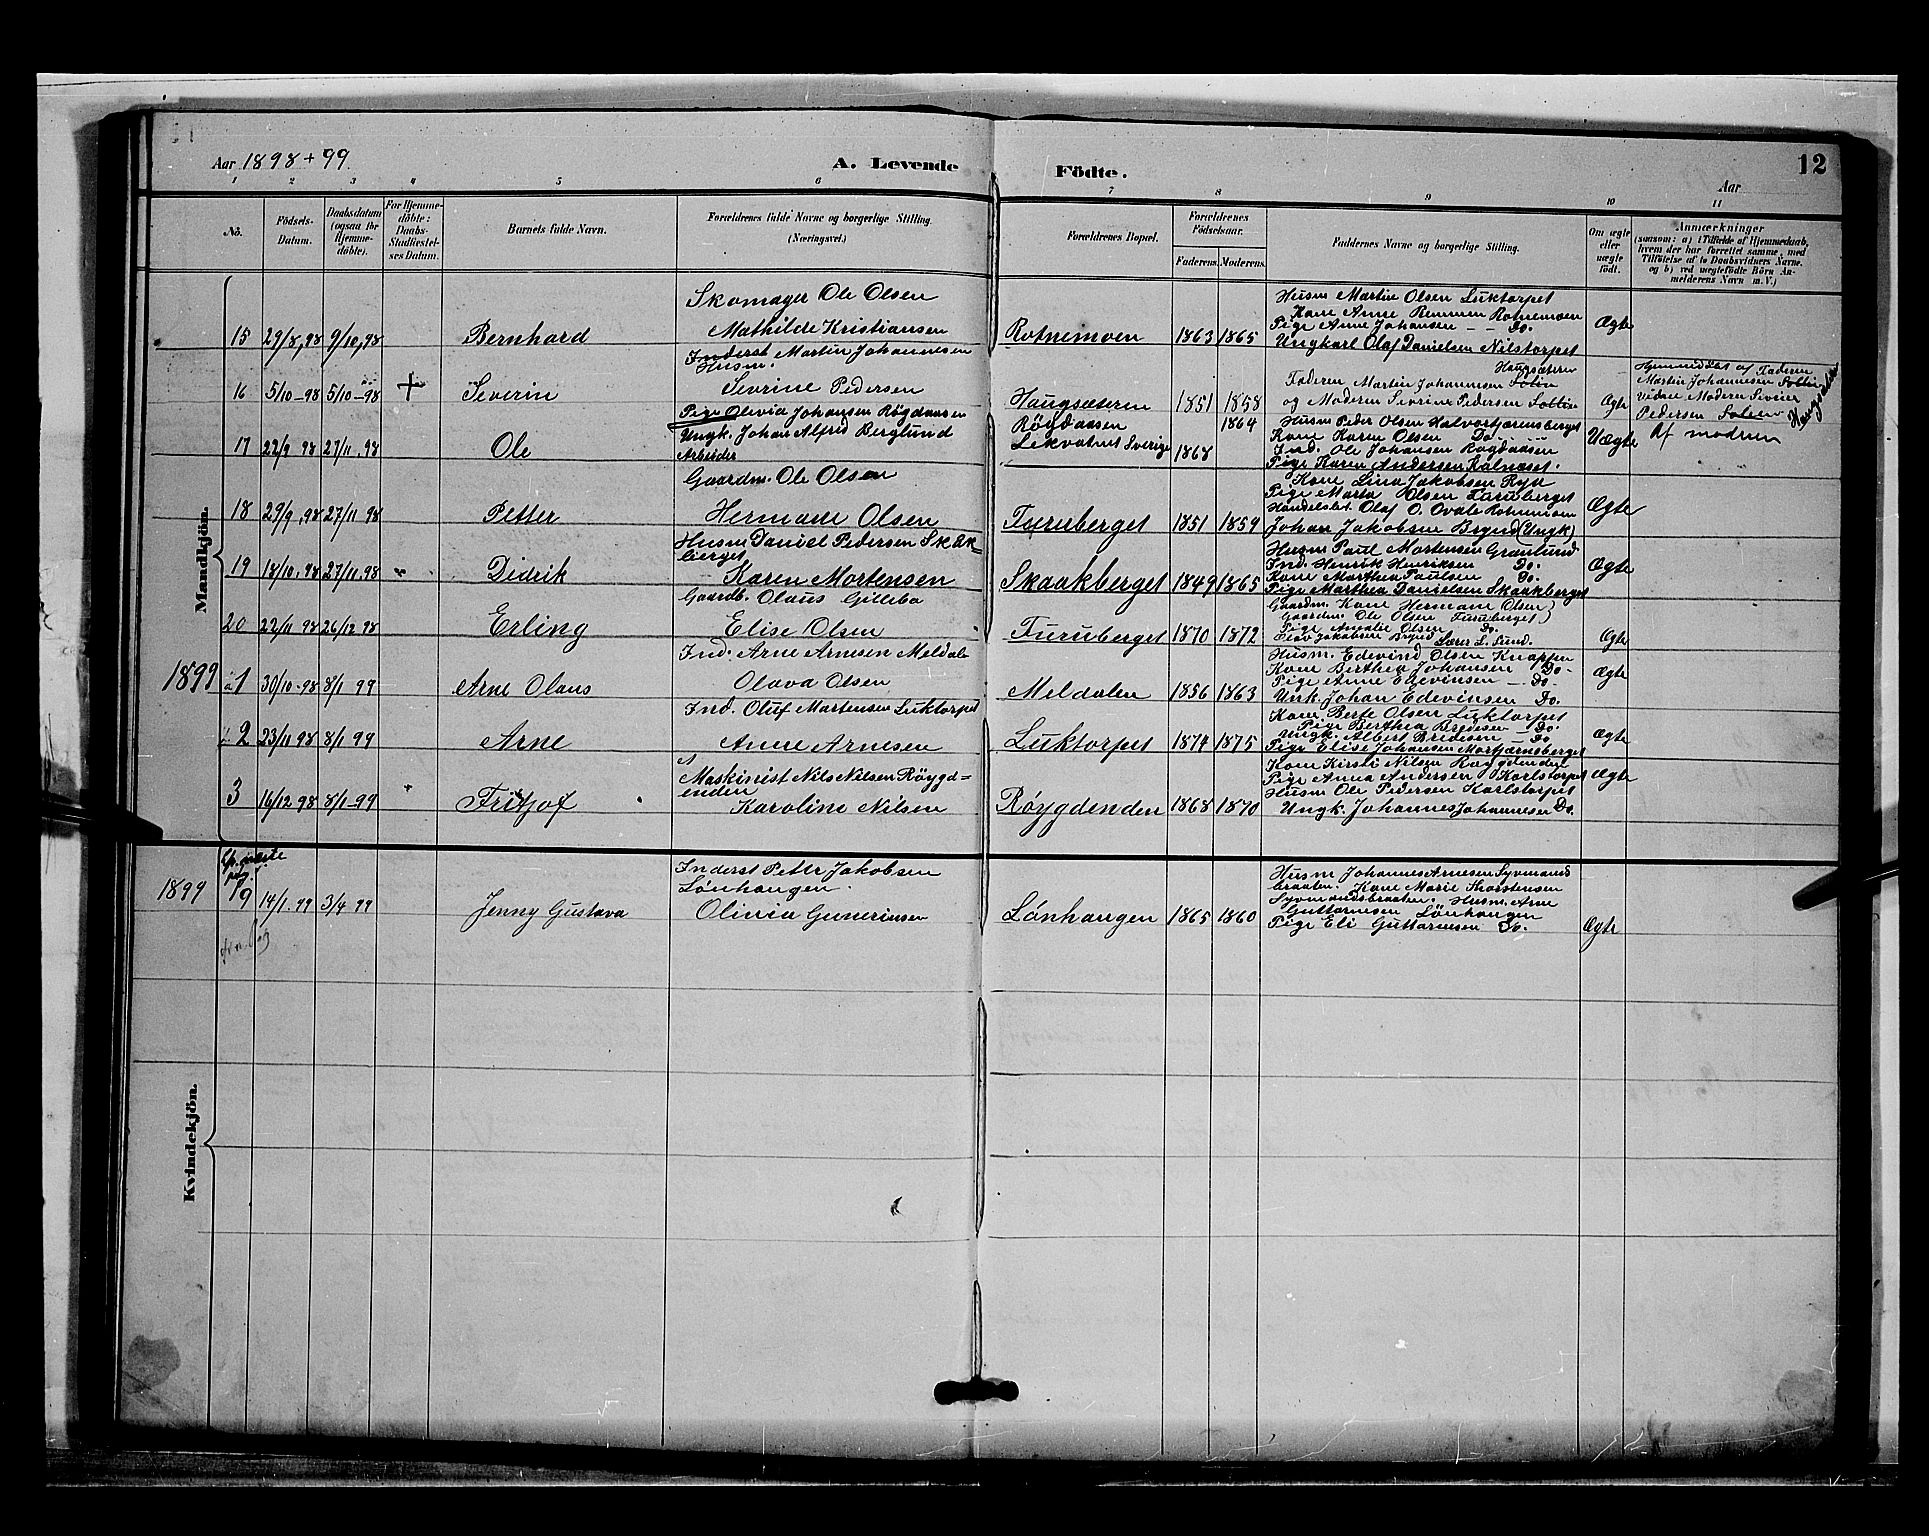 Aar 1898 + 99. A. Levende Födte. Aar 12
1 2 3 4 5 6 7 8 9 10 11
No. Födsels-Datum. Daabsdatum (ogsaa for Hjemmedöbte). For Hjemmedöbte: Daabs-Stadfæstelses Datum. Barnets fulde Navn. Forældrenes fulde Navne og borgerlige Stilling. (Næringsvei.) Forældrenes Bopæl. Forældrenes Födselsaar. Faderens. Moderens. Faddernes Navne og borgerlige Stilling. Om ægte eller uægte födt. Anmærkninger (saasom: a) i Tilfælde af Hjemmedaab, hvem der har forrettet samme, med Tilföielse af to Daabsvidners Navne. og b) ved uægtefödte Börn Anmelderens Navn m. V.)
Mandkjön.
15 29/8,98 9/10,98 Bernhard
Skomager Ole Olsen
Mathilde Kristiansen
Rotnemoen 1863 1865
Husm Martin Olsen Luktorpet
Kone Anne Rotnemoen
Pige Anne Johansen — Do.
Ungkarl Olaf Danielsen Nilstorpet
Ægte
16 5/10-98 5/10-98 + Severin
Inderst Martin Johannesen
Husm.
Sevrine Pedersen
Haugsæteren 1851 1858
Haugsæteren
Faderen Martin Johannesen
og Moderen Sevrine Pedersen
Ægte
Hjemmedöbt af Faderen
Martin Johannesen
Vidne Moderen
Pedersen
17 22/9 98 27/11.98 Ole
Pige Olivia Johansen Røgdaasen
Ungk. Johan Alfred Berglund
Arbeider
Røgdaasen 1864
Lekvatnet Sverige 1868
Husm Peder Olsen Halvortjærnsberget
Kone Karen Olsen Do.
Ind. Ole Johansen Røgdaasen
Pige Karen Andersen Kalnæset.
Uægte
Af modren
18 29/9,98 27/11 98 Petter
Gaardm. Ole Olsen
Hermane Olsen
Furuberget 1851 1859
Kone Lina Jakobsen
Pige Marta Olsen Furuberget
Handelsbet. Olaf O. Ovale
Johan Jakobsen Brynd (Ungk)
Ægte
19 18/10.98 27/11.98 Didrik
Husm Daniel Pedersen Skaak=
berget
Karen Mortensen
Skaakberget 1849 1865
Husm Paul Mortensen Grønlund
Ind. Henrik Henriksen Do.
Kone Marthea Paulsen Do.
Pige Marthea Danielsen Skaakberget
Ægte
20 22/11 98 26/12 98 Erling
Gaardb. Olaus Gilleba
Elise Olsen
Furuberget 1870 1872
Gaardm. Kone Hermane Olsen
Gaardm. Ole Olsen Furuberget
Pige Amalie Olsen Do.
Lærer L. Lund.
Ægte
1899 1 30/10-98 8/1 99 Arne Olaus
Ind. Arne Arnesen Meldal
Olava Olsen
Meldalen 1856 1863
Husm. Edevind Olsen Knappen
Kone Berthea Johansen Do.
Pige Anne Edevinsen — Do.
Unk. Johan Edevinsen Do.
Ægte
2 23/11 98 8/1 99 Arne
Ind. Oluf Martensen Luktorpet
Anne Arnesen
Luktorpet 1874 1875
Kone Berte Olsen Luktorpet
Pige Berthea Bredesen — Do.
Ungk. Albert Bredesen — Do
Pige Elise Johansen Mortjærnsberget
Ægte
3 16/12 98 8/1-99 Fritjof
Maskinist Nils Nilsen Röygd=
enden
Karoline Nilsen
Røygdenden 1868 1870
Kone Kirsti Nilsen Røygdenden
Pige Anna Andersen Karlstorpet
Husm Ole Pedersen Karlstorpet
Ungk. Johannes Johannesen Do.
Ægte
Kvindekjön.
1899 19 14/1.99 3/4 99 Jenny Gustava
Inderst Petter Jakobsen
Lønhaugen.
Olivia Gunerinsen
Lønhaugen 1865 1860
Husm Johannes Arnesen
braaten. Kone Marie Thorstensen
Husm. Arne
Guttormsen Lönhaugen
Pige Eli Guttormsen Do.
Ægte